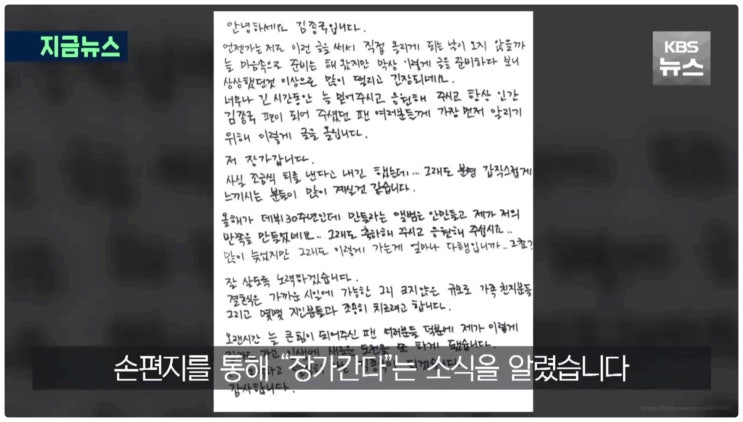 지금뉴스
KBS
뉴스
안녕하세요 김종국입니다.
언젠가는 저도 이런 글을 써서 직접 올리게 되는 날이 오지 않을까
늘 마음속으로 준비는 해 왔지만 막상 이렇게 글을 준비하다 보니
상상했던것 이상으로 많이 떨리고 긴장되네요.
너무나 긴 시간동안 늘 믿어주시고 응원해 주시고 항상 인간
김종국 편이 되어 주셨던 팬 여러분들께 가장 먼저 알리기
위해 이렇게 글을 올립니다.
저 장가갑니다.
사실 조금씩 티를 낸다고 내긴 했는데... 그래도 분명 갑작스럽게
느끼시는 분들이 많이 계실것 같습니다.
올해가 데뷔 30주년인데 만들라는 앨범은 안만들고 제가 저의
반쪽을 만들었네요.. 그래도 축하해 주시고 응원해 주십시요..
많이 늦었지만 그래도 이렇게 가는게 얼마나 다행입니까..
잘 살도록 노력하겠습니다.
결혼식은 가까운 시일에 가능한 그리 크지않은 규모로 가족 친지분들
그리고 몇몇 지인분들과 조용히 치르려고 합니다.
오랜시간 늘 큰 힘이 되어주신 팬 여러분들 덕분에 제가 이렇게
새로운 도전을 또 하게 됐습니다.
감사합니다.
손편지를 통해 “장가간다”는 소식을 알렸습니다